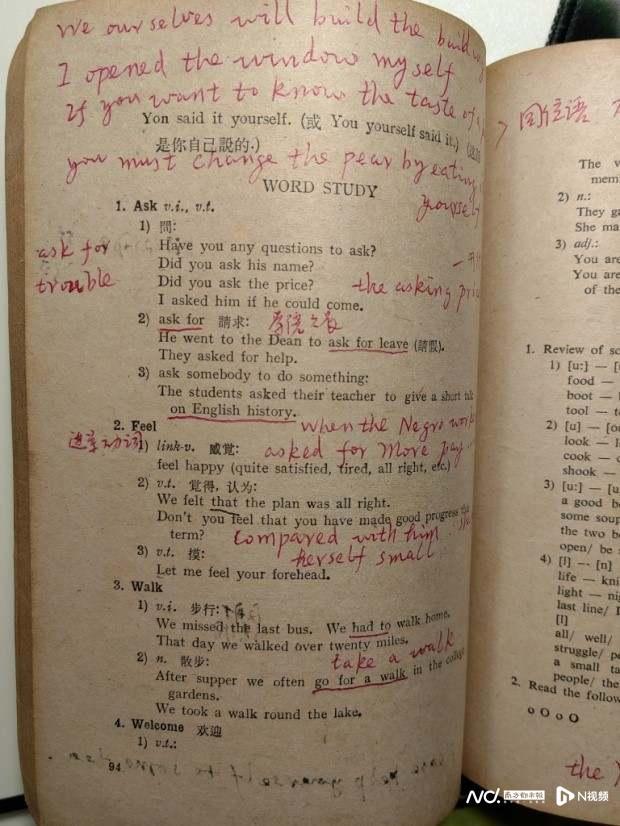 We ourselves will build the build
I opened the window myself
If you want to know the taste of a
Yon said it yourself. (或 You yourself said it.)
是你自己說的.)
you must change the pear by eating
yourself
WORD STUDY
1. Ask v.i., v.t.
1) 問:
Have you any questions to ask?
Did you ask his name?
Did you ask the price?
the asking pri
I asked him if he could come.
ask for
trouble
2) ask for 請求:
He went to the Dean to ask for leave (請假).
They asked for help.
3) ask somebody to do something:
The students asked their teacher to give a short talk
on English history.
when the Negro work
2. Feel
1) link-v. 感覚:
asked for more pay
feel happy (quite satisfied, tired, all right, etc.)
2) v.t. 覚得, 认为:
We felt that the plan was all right.
Don't you feel that you have made good progress this
term?
Compared with him
herself small
3) v.t. 摸:
Let me feel your forehead.
3. Walk
1) v.i. 步行:
We missed the last bus. We had to walk home.
That day we walked over twenty miles.
take a walk
2) n. 散步:
After supper we often go for a walk in the college
gardens.
We took a walk round the lake.
4. Welcome 欢迎
1) v.t.:
94
同位语
The v
mem
2) n.:
They ga
She ma
3) adj.:
You are
You are
of the
1. Review of so
1) [u:] — [
food —
boot —
tool — t
2) [u] — [o
look — l
cook — c
shook —
3) [u:] — [
a good b
some soup
the two b
open/ be s
4) [l] — [n]
life — kni
light — nig
last line/ I
[l]
all/ well/
struggle/ pe
a small ta
people/ the
2. Read the follow
o O o O
the
ND. 南方都市报 N视频